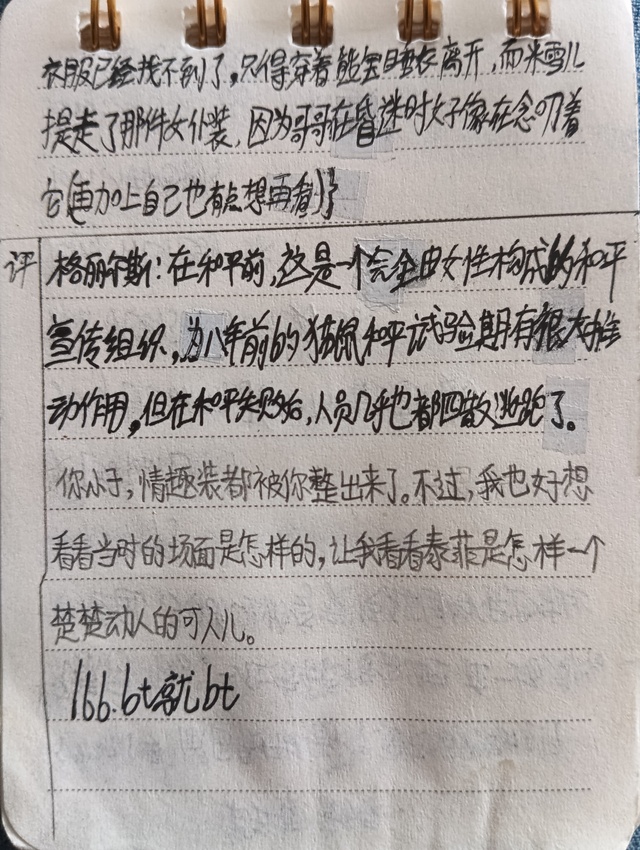 衣服已经找不到了，只得穿着熊宝睡衣离开，而米雪儿
提走了那件女仆装，因为哥哥在昏迷时好像在念叨着
它(再加上自己也有点想再看)}
评 格丽尔斯：在和平前，这是一个完全由女性构成的和平
宣传组织，为八年前的猫鼠和平试验期有很大推
动作用，但在和平失败后，人员几乎也都四散逃跑了。
你小子，情趣装都被你整出来了。不过，我也好想
看看当时的场面是怎样的，让我看看泰菲是怎样一个
楚楚动人的可人儿。
166.bt就bt